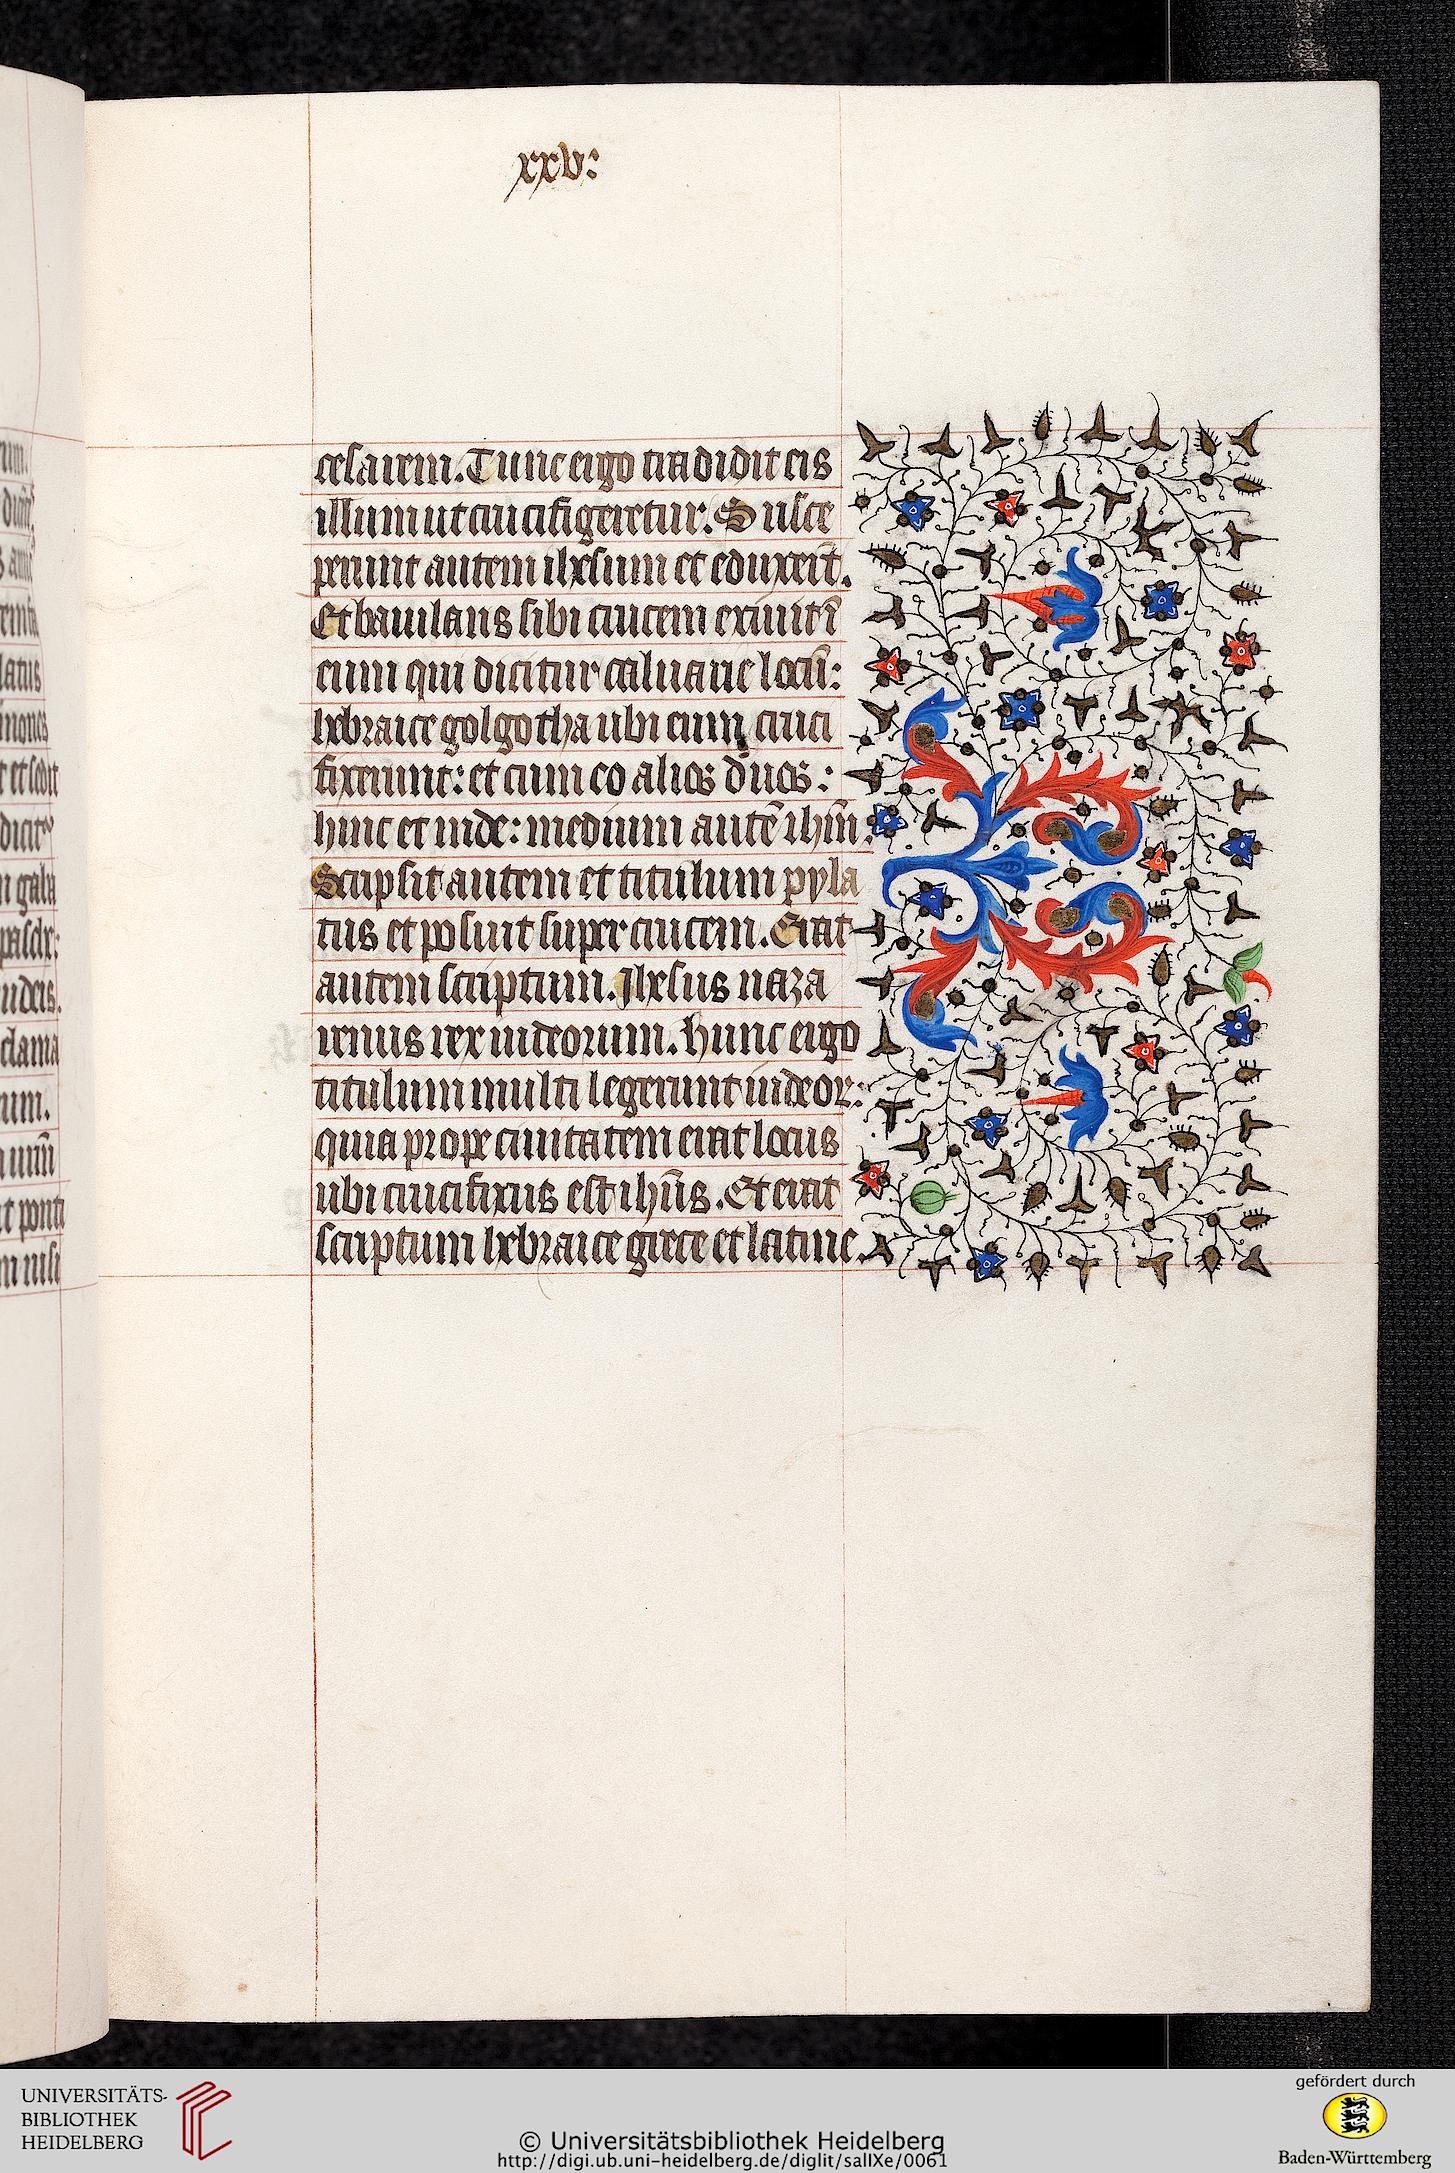 xxv:
cesarem. Tunc ergo tradidit eis
illum ut crucifigeretur. Susce
perunt autem ihesum et eduxerūt.
Et baiulans sibi crucem exiuit ī
eum qui dicitur caluarie locū:
hebraice golgotha ubi eum cruci
fixerunt: et cum eo alios duos:
hinc et inde: medium autē ihm̄.
Scripsit autem et titulum pyla
tus et posuit super crucem. Erat
autem scriptum. Ihesus naza
renus rex iudeorum. hunc ergo
titulum multi legerunt iudeor:
quia prope ciuitatem erat locus
ubi crucifixus est ihūs. Et erat
scriptum hebraice grece et latine.
UNIVERSITÄTS-
BIBLIOTHEK
HEIDELBERG
© Universitätsbibliothek Heidelberg
http://digi.ub.uni-heidelberg.de/diglit/salIXe/0061
gefördert durch
Baden-Württemberg